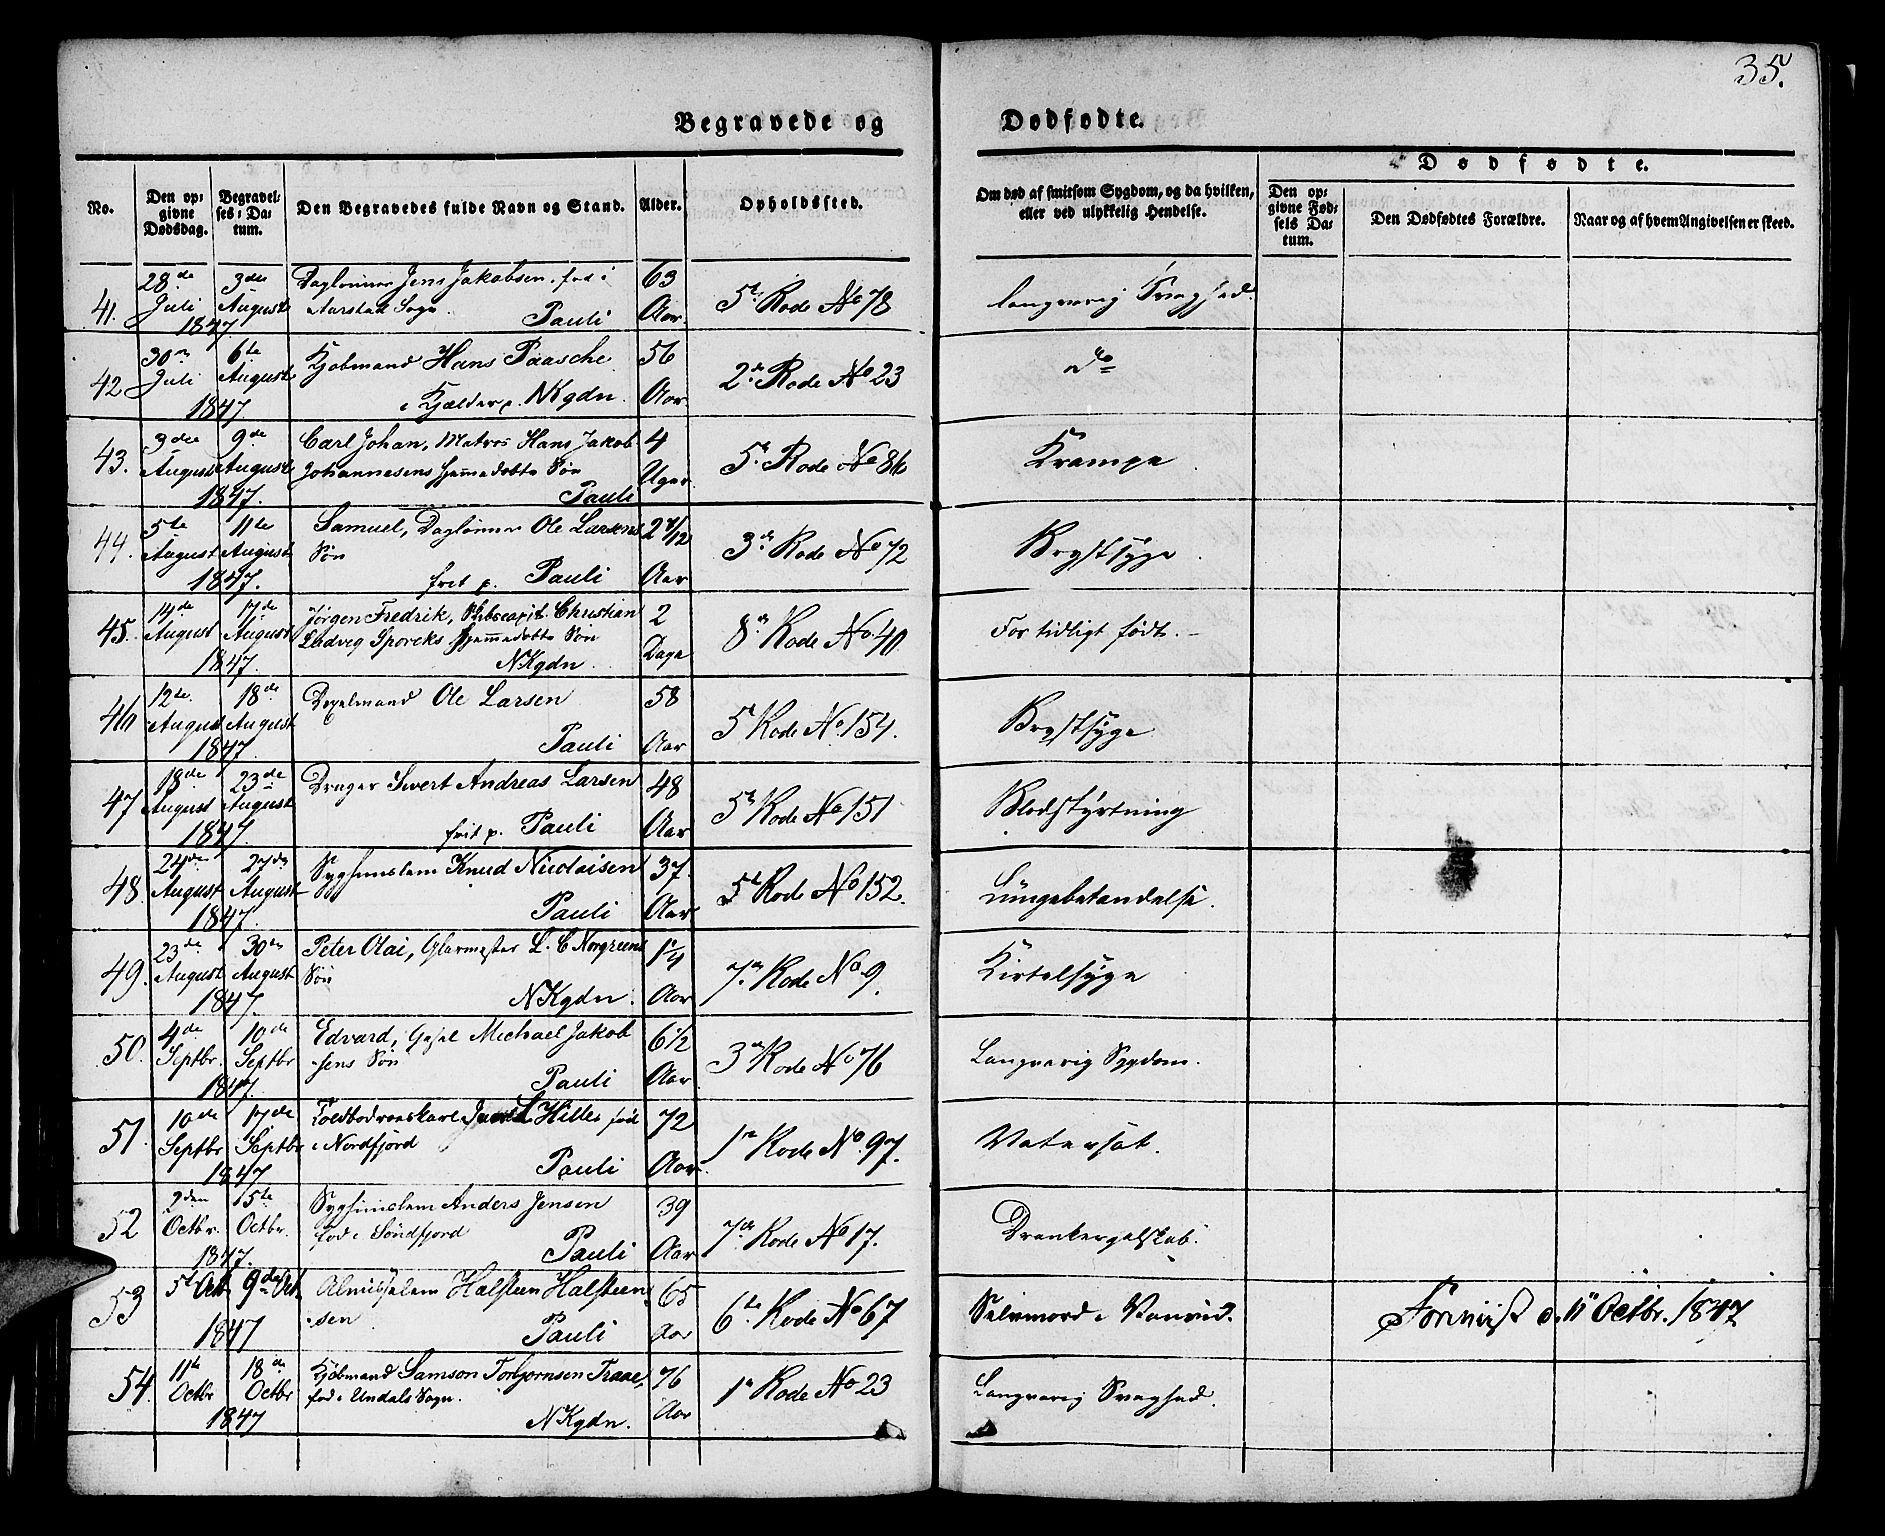 35.
Begravede og Dødfødte.
Dødfødte.
No.
Den opgivne Dødsdag.
Begravelses-Datum.
Den Begravedes fulde Navn og Stand.
Alder.
Opholdssted.
Om død af smitsom Sygdom, og da hvilken, eller ved ulykkelig Hendelse.
Den opgivne Fødsels Datum.
Den Dødfødtes Forældre.
Naar og af hvem Angivelsen er skeed.
41. 28de Juli 3die August 1847 Daglønner Jens Jakobsen, fød i 63 Aar 5te Rode No 78 langvarig Svaghed.
Aarstad Sogn. Pauli
42. 30te Juli 6te August 1847 Kjøbmand Hans Paasche 56 Aar 2den Rode No 23 do
i Kjælder p. NKgdn.
43. 3die August 9de August 1847. Carl Johan, Matros Hans Jakob 4 Uger 5te Rode No 86 Krampe.
Johannesens hjemmedøbte Søn
Pauli
44. 5te August 11te August 1847. Samuel, Daglønner Ole Larsens 2 7/12 Aar 3die Rode No 72 Brystsyge.
Søn
frit p. Pauli
45. 14de August 17de August 1847 Jørgen Fredrik, Skibscapit. Christian 2 Dage 8de Rode No 40 For tidligt født.
Ludvig Sporcks hjemmedøbte Søn
NKgdn.
46 12te August 18de August 1847 Ole Larsen 58 Aar 5te Rode No 154. Brystsyge
Pauli
47 18de August 23de August 1847 Drager Sivert Andreas Larsen 48 Aar 5te Rode No 151 Blodstyrtning
frit p. Pauli
48. 24de August 27de August 1847 Sygehuslem Knud Nicolaisen 37 Aar 5te Rode No 152. Lungebetændelse.
Pauli
49. 23de August 30te August 1847. Peter Olai, Glarmester L. C Norgreens 1 1/4 Aar 7de Rode No 9. Kirtelsyge
Søn
NKgdn.
50. 4de Septbr. 10de Septbr 1847. Edvard, Gesel Michael Jakob 6 1/2 Aar 3die Rode No 76 Langvarig Sygdom.
sens Søn
Pauli
51. 10de Septbr 17de Septbr 1847 Toldbodroerskarl Hille fød 72 Aar. 1ste Rode No. 97. Vatersot.
i Nordfjord
Pauli
52 9den Octbr. 15te Octbr. 1847. Sygehuslem Anders Jensen 39 Aar 7de Rode No 17. Drankergalskab.
fød i Søndfjord
Pauli
53 5te Oct. 9de Oct. 1847 Almuslem Halsteen Halsteen 65 Aar 6te Rode No 67 Selvmord i Vanvid. Forevist d. 11 Octbr. 1847
sen
Pauli
54. 11te Octbr 18de Octbr 1847 Kjøbmand Samson Torbjørnsen Traae, 76 Aar 1ste Rode No 23 Langvarig Svaghed.
fød i Undals Sogn.
NKgdn.